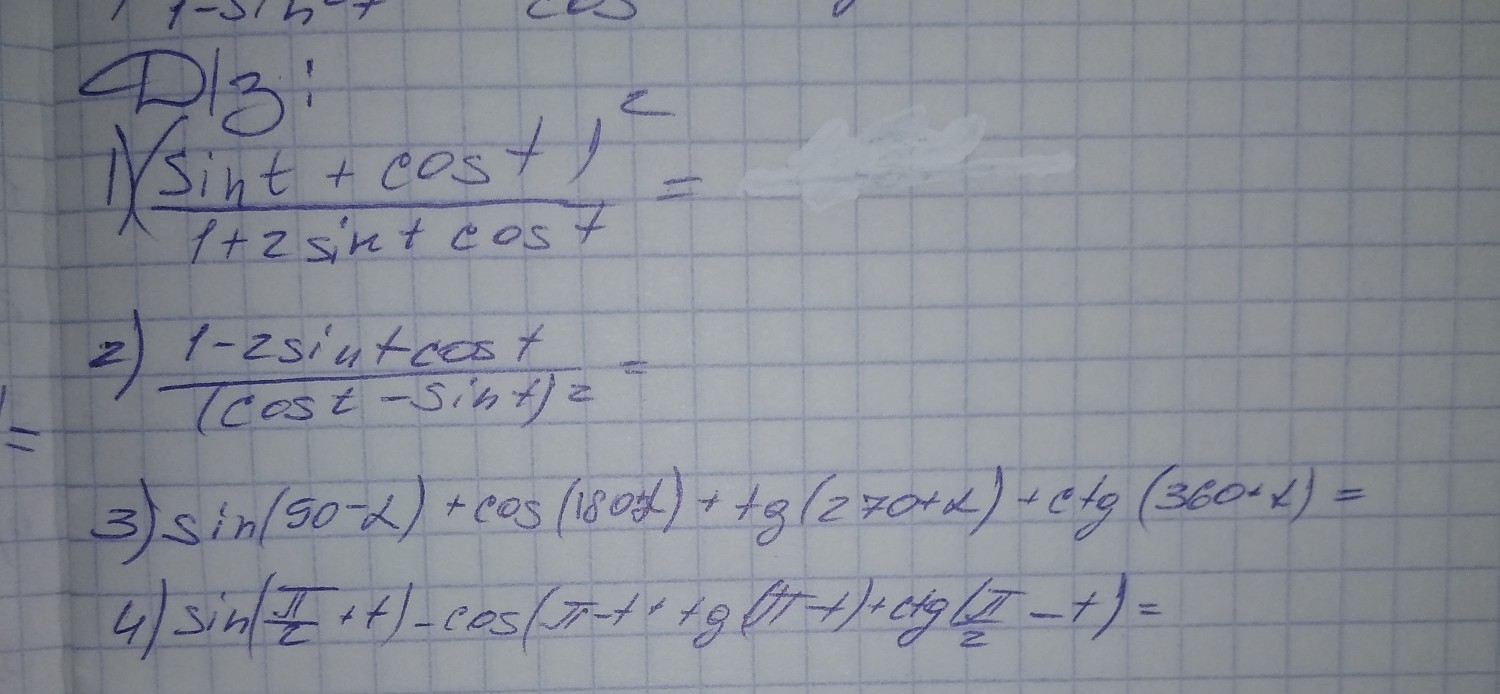 1-sin²t cos
D/з:
1) (sint + cost)² / 1+2sint cost =
2) 1-2sint cost / (cost - sint)2 =
=
3) sin(90-α) + cos(180+α) + tg(270+α) + ctg(360+α) =
4) sin(π/2 + t) - cos(π-t + tg(π-t) + ctg(π/2 - t) =